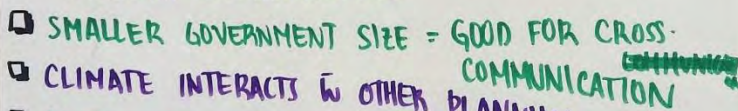 SMALLER GOVERNMENT SIZE = GOOD FOR CROSS-
COMMUNICATION
CLIMATE INTERACTS W OTHER